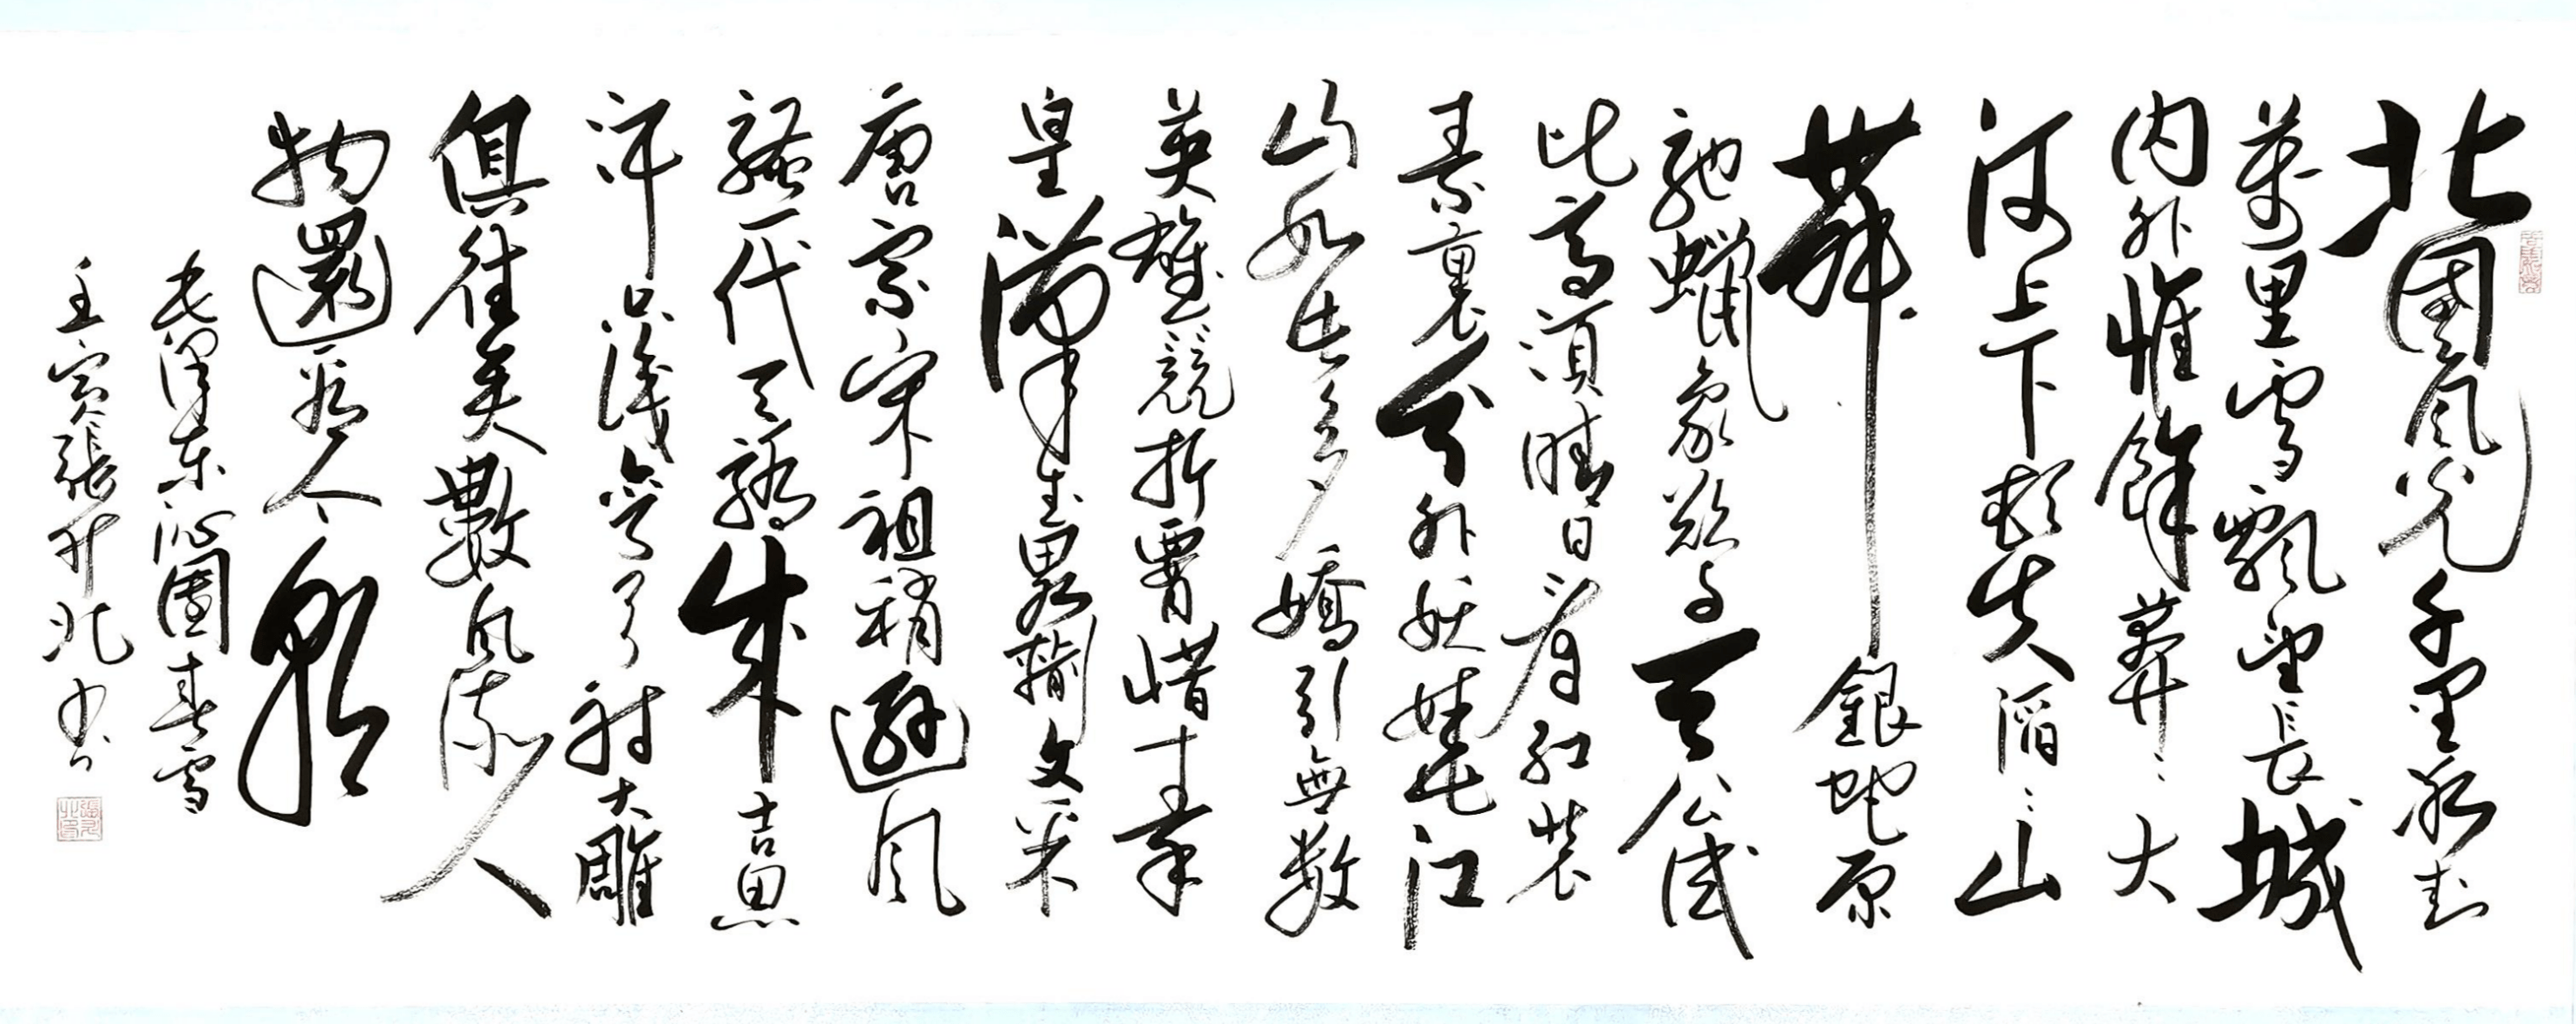 北國風光千里冰封
萬里雪飄望長城
内外惟餘莽〻大
河上下頓失滔〻山
舞銀蛇原
馳蠟象欲与天公試
比高須晴日看紅裝
素裹分外妖嬈江
山如此多嬌引無數
英雄競折腰惜秦
皇漢武畧輸文采
唐宗宋祖稍遜風
騷一代天驕成吉思
汗只識彎弓射大雕
俱往矣數風流人
物還看今朝
毛澤東沁園春雪
壬寅張升北书